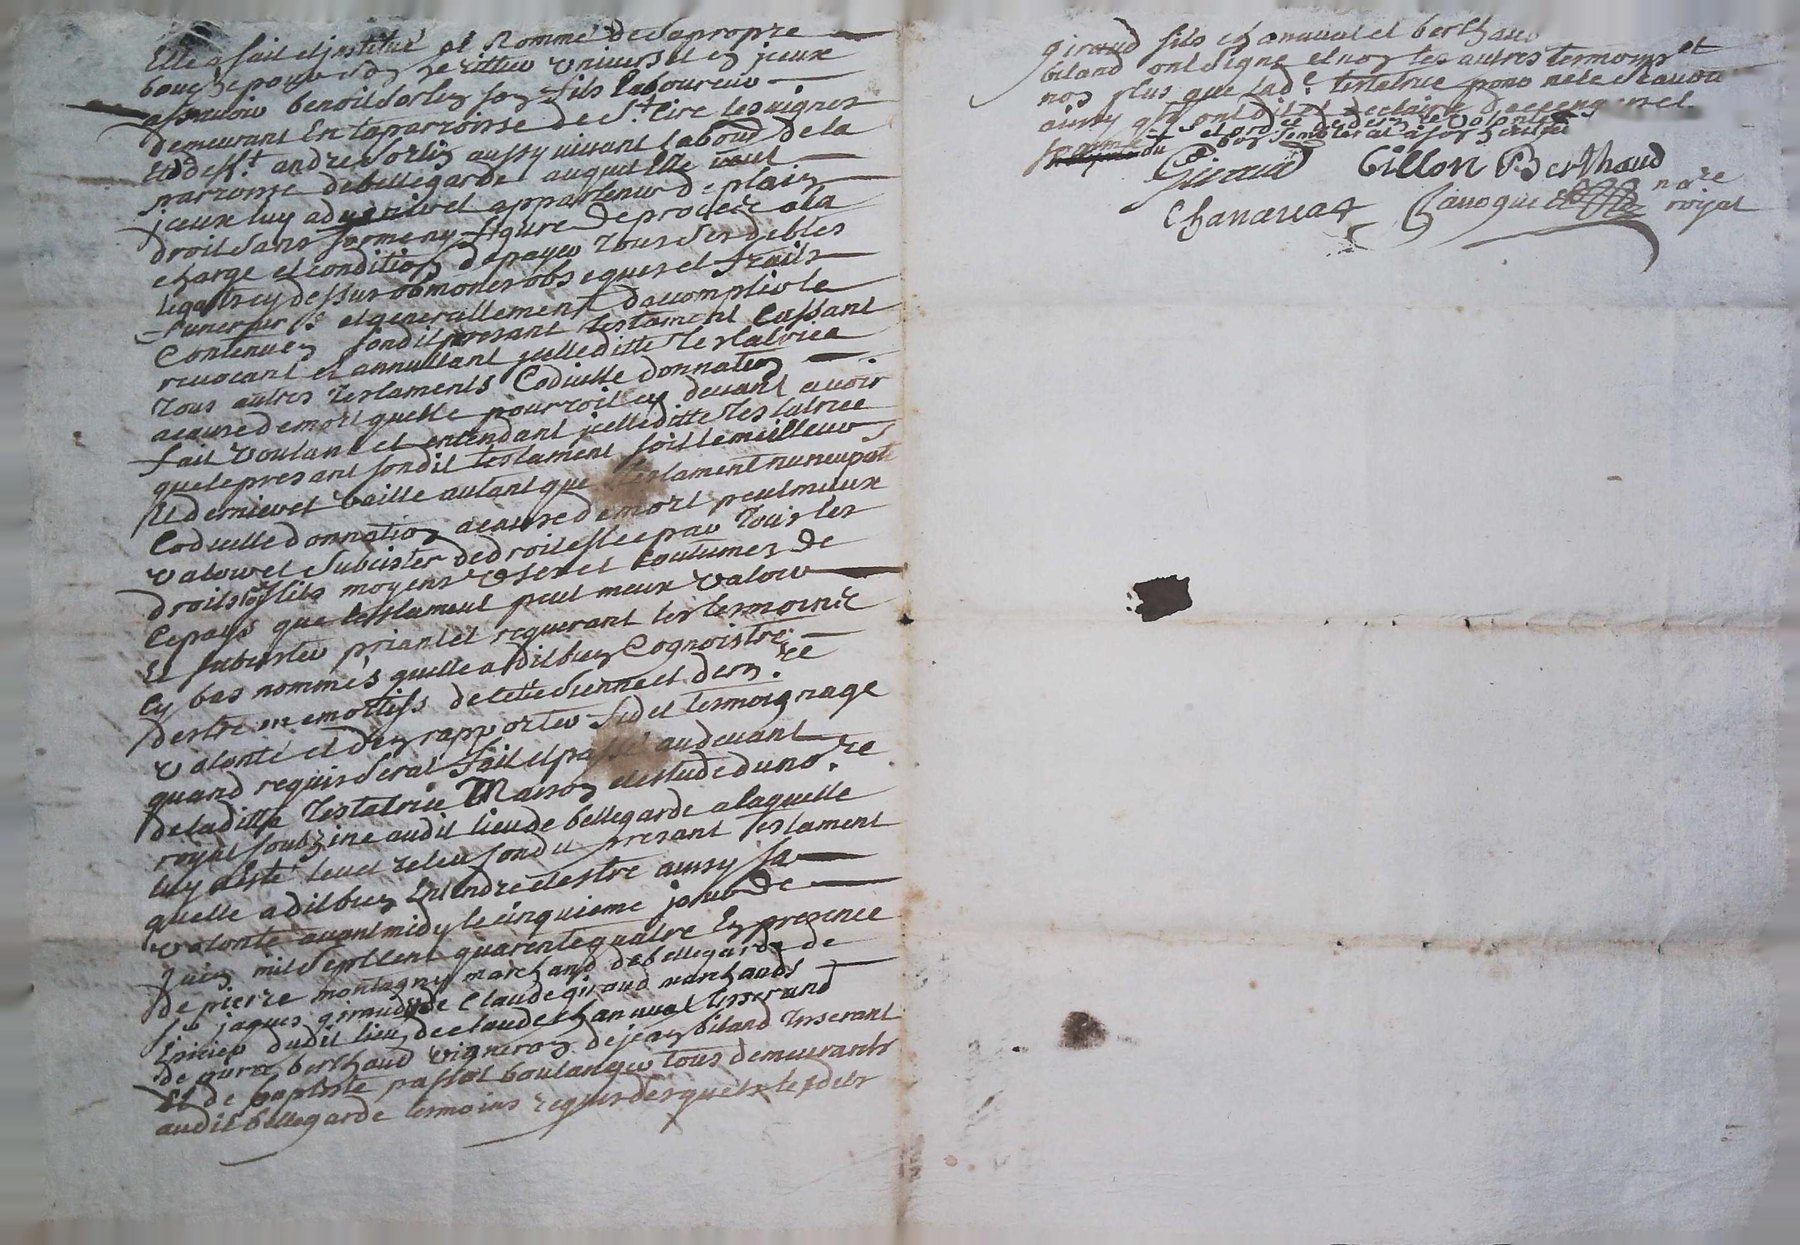 Elle a fait et institué et Nommé de sa propre
bouche pour son heritier universel et en jceux
a scavoir benoit sorlin son fils laboureur
demeurant En la parroisse de St Cire les vignes
Et de ff.t andre sorlin aussy vivant labour de la
parroisse de bellegarde auquel Elle veut
jceux luy advenir et appartenir de plain
droit sans forme ny figure de procez a la
charge et condition de payer tous ses debtes
legats cy dessus obmones obseques et fraits
funerers et generallement d'acomplir le
Contenu en sondit presant testament Cassant
revocant et annullant jcelle ditte Testatrice
tous autres testaments Codicille donnation
a cause de mort quelle pourroit cy devant avoir
fait voulant et entendant jcelle ditte Testatrice
que le presant sondit testament soit le meilleur
et dernier et vaille autant que testament nuncupatif
Codicille donnation a cause de mort peut mieux
valoir et subcister de droit et ce par tous les
droits et tils moyens Uses et Coutumes de
Ce pays que testament peut meux valoir
Et subcister priant et requerant les termoins
Cy bas nommés quelle a dit bien Cognoistre
destre memortifs de cette sienne et dern.re
volonté et d'en rapporter fidel termoignage
quand requis seras fait et passé au devant
de la ditte Testatrice Maison et estude du no.re
royal soubsine audit lieu de bellegarde a laquelle
luy a esté leu et releu sondit presant testament
quelle a dit bien Entendre et estre aussy sa
volonté avant midy le cinquieme jour de
juin mil sept cent quarente quatre En presence
de pierre montagny marchand de bellegarde de
sr jaques giraud de Claude giraud marchands
Epicier dudit lieu de claude chanavat tisserand
de pierre berthaud vigneron de jean biland tisserant
Et de baptiste passot boulanger tous demeurants
audit bellegarde termoins requis desquels lesdits
giraud fils chanavat et berthaud
biland ont signe et non les autres termoins et
non plus que lad.e testatrice pour ne le scavoir
ainsy qils ont dit et declaire de ce enquis et
Giraud Gillon Berthaud
Chanavat Lanogue no.re
royal